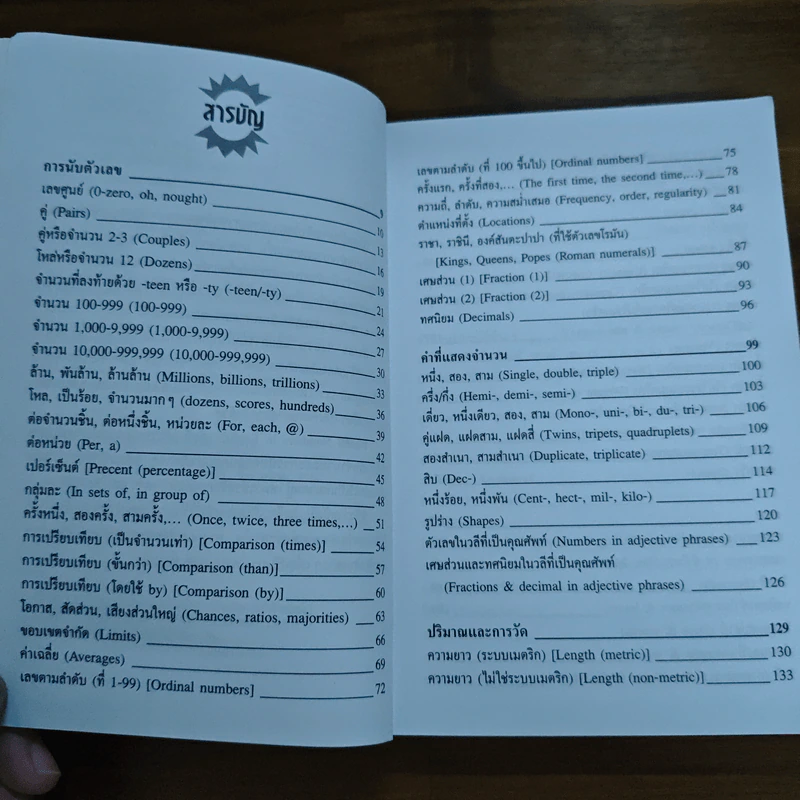 สารบัญ
การนับตัวเลข 9
เลขศูนย์ (0-zero, oh, nought) 10
คู่ (Pairs) 13
คู่หรือจำนวน 2-3 (Couples) 16
โหลหรือจำนวน 12 (Dozens) 19
จำนวนที่ลงท้ายด้วย -teen หรือ -ty (-teen/-ty) 21
จำนวน 100-999 (100-999) 24
จำนวน 1,000-9,999 (1,000-9,999) 27
จำนวน 10,000-999,999 (10,000-999,999) 30
ล้าน, พันล้าน, ล้านล้าน (Millions, billions, trillions) 33
โหล, เป็นร้อย, จำนวนมากๆ (dozens, scores, hundreds) 36
ต่อจำนวนชิ้น, ต่อหนึ่งชิ้น, หน่วยละ (For, each, @) 39
ต่อหน่วย (Per, a) 42
เปอร์เซ็นต์ [Precent (percentage)] 45
กลุ่มละ (In sets of, in group of) 48
ครั้งหนึ่ง, สองครั้ง, สามครั้ง,... (Once, twice, three times,...) 51
การเปรียบเทียบ (เป็นจำนวนเท่า) [Comparison (times)] 54
การเปรียบเทียบ (ขั้นกว่า) [Comparison (than)] 57
การเปรียบเทียบ (โดยใช้ by) [Comparison (by)] 60
โอกาส, สัดส่วน, เสียงส่วนใหญ่ (Chances, ratios, majorities) 63
ขอบเขตจำกัด (Limits) 66
ค่าเฉลี่ย (Averages) 69
เลขตามลำดับ (ที่ 1-99) [Ordinal numbers] 72
เลขตามลำดับ (ที่ 100 ขึ้นไป) [Ordinal numbers] 75
ครั้งแรก, ครั้งที่สอง,... (The first time, the second time,...) 78
ความถี่, ลำดับ, ความสม่ำเสมอ (Frequency, order, regularity) 81
ตำแหน่งที่ตั้ง (Locations) 84
ราชา, ราชินี, องค์สันตะปาปา (ที่ใช้ตัวเลขโรมัน)
[Kings, Queens, Popes (Roman numerals)] 87
เศษส่วน (1) [Fraction (1)] 90
เศษส่วน (2) [Fraction (2)] 93
ทศนิยม (Decimals) 96
คำที่แสดงจำนวน 99
หนึ่ง, สอง, สาม (Single, double, triple) 100
ครึ่ง/กึ่ง (Hemi-, demi-, semi-) 103
เดี่ยว, หนึ่งเดียว, สอง, สาม (Mono-, uni-, bi-, du-, tri-) 106
คู่แฝด, แฝดสาม, แฝดสี่ (Twins, tripets, quadruplets) 109
สองสำเนา, สามสำเนา (Duplicate, triplicate) 112
สิบ (Dec-) 114
หนึ่งร้อย, หนึ่งพัน (Cent-, hect-, mil-, kilo-) 117
รูปร่าง (Shapes) 120
ตัวเลขในวลีที่เป็นคุณศัพท์ (Numbers in adjective phrases) 123
เศษส่วนและทศนิยมในวลีที่เป็นคุณศัพท์
(Fractions & decimal in adjective phrases) 126
ปริมาณและการวัด 129
ความยาว (ระบบเมตริก) [Length (metric)] 130
ความยาว (ไม่ใช่ระบบเมตริก) [Length (non-metric)] 133